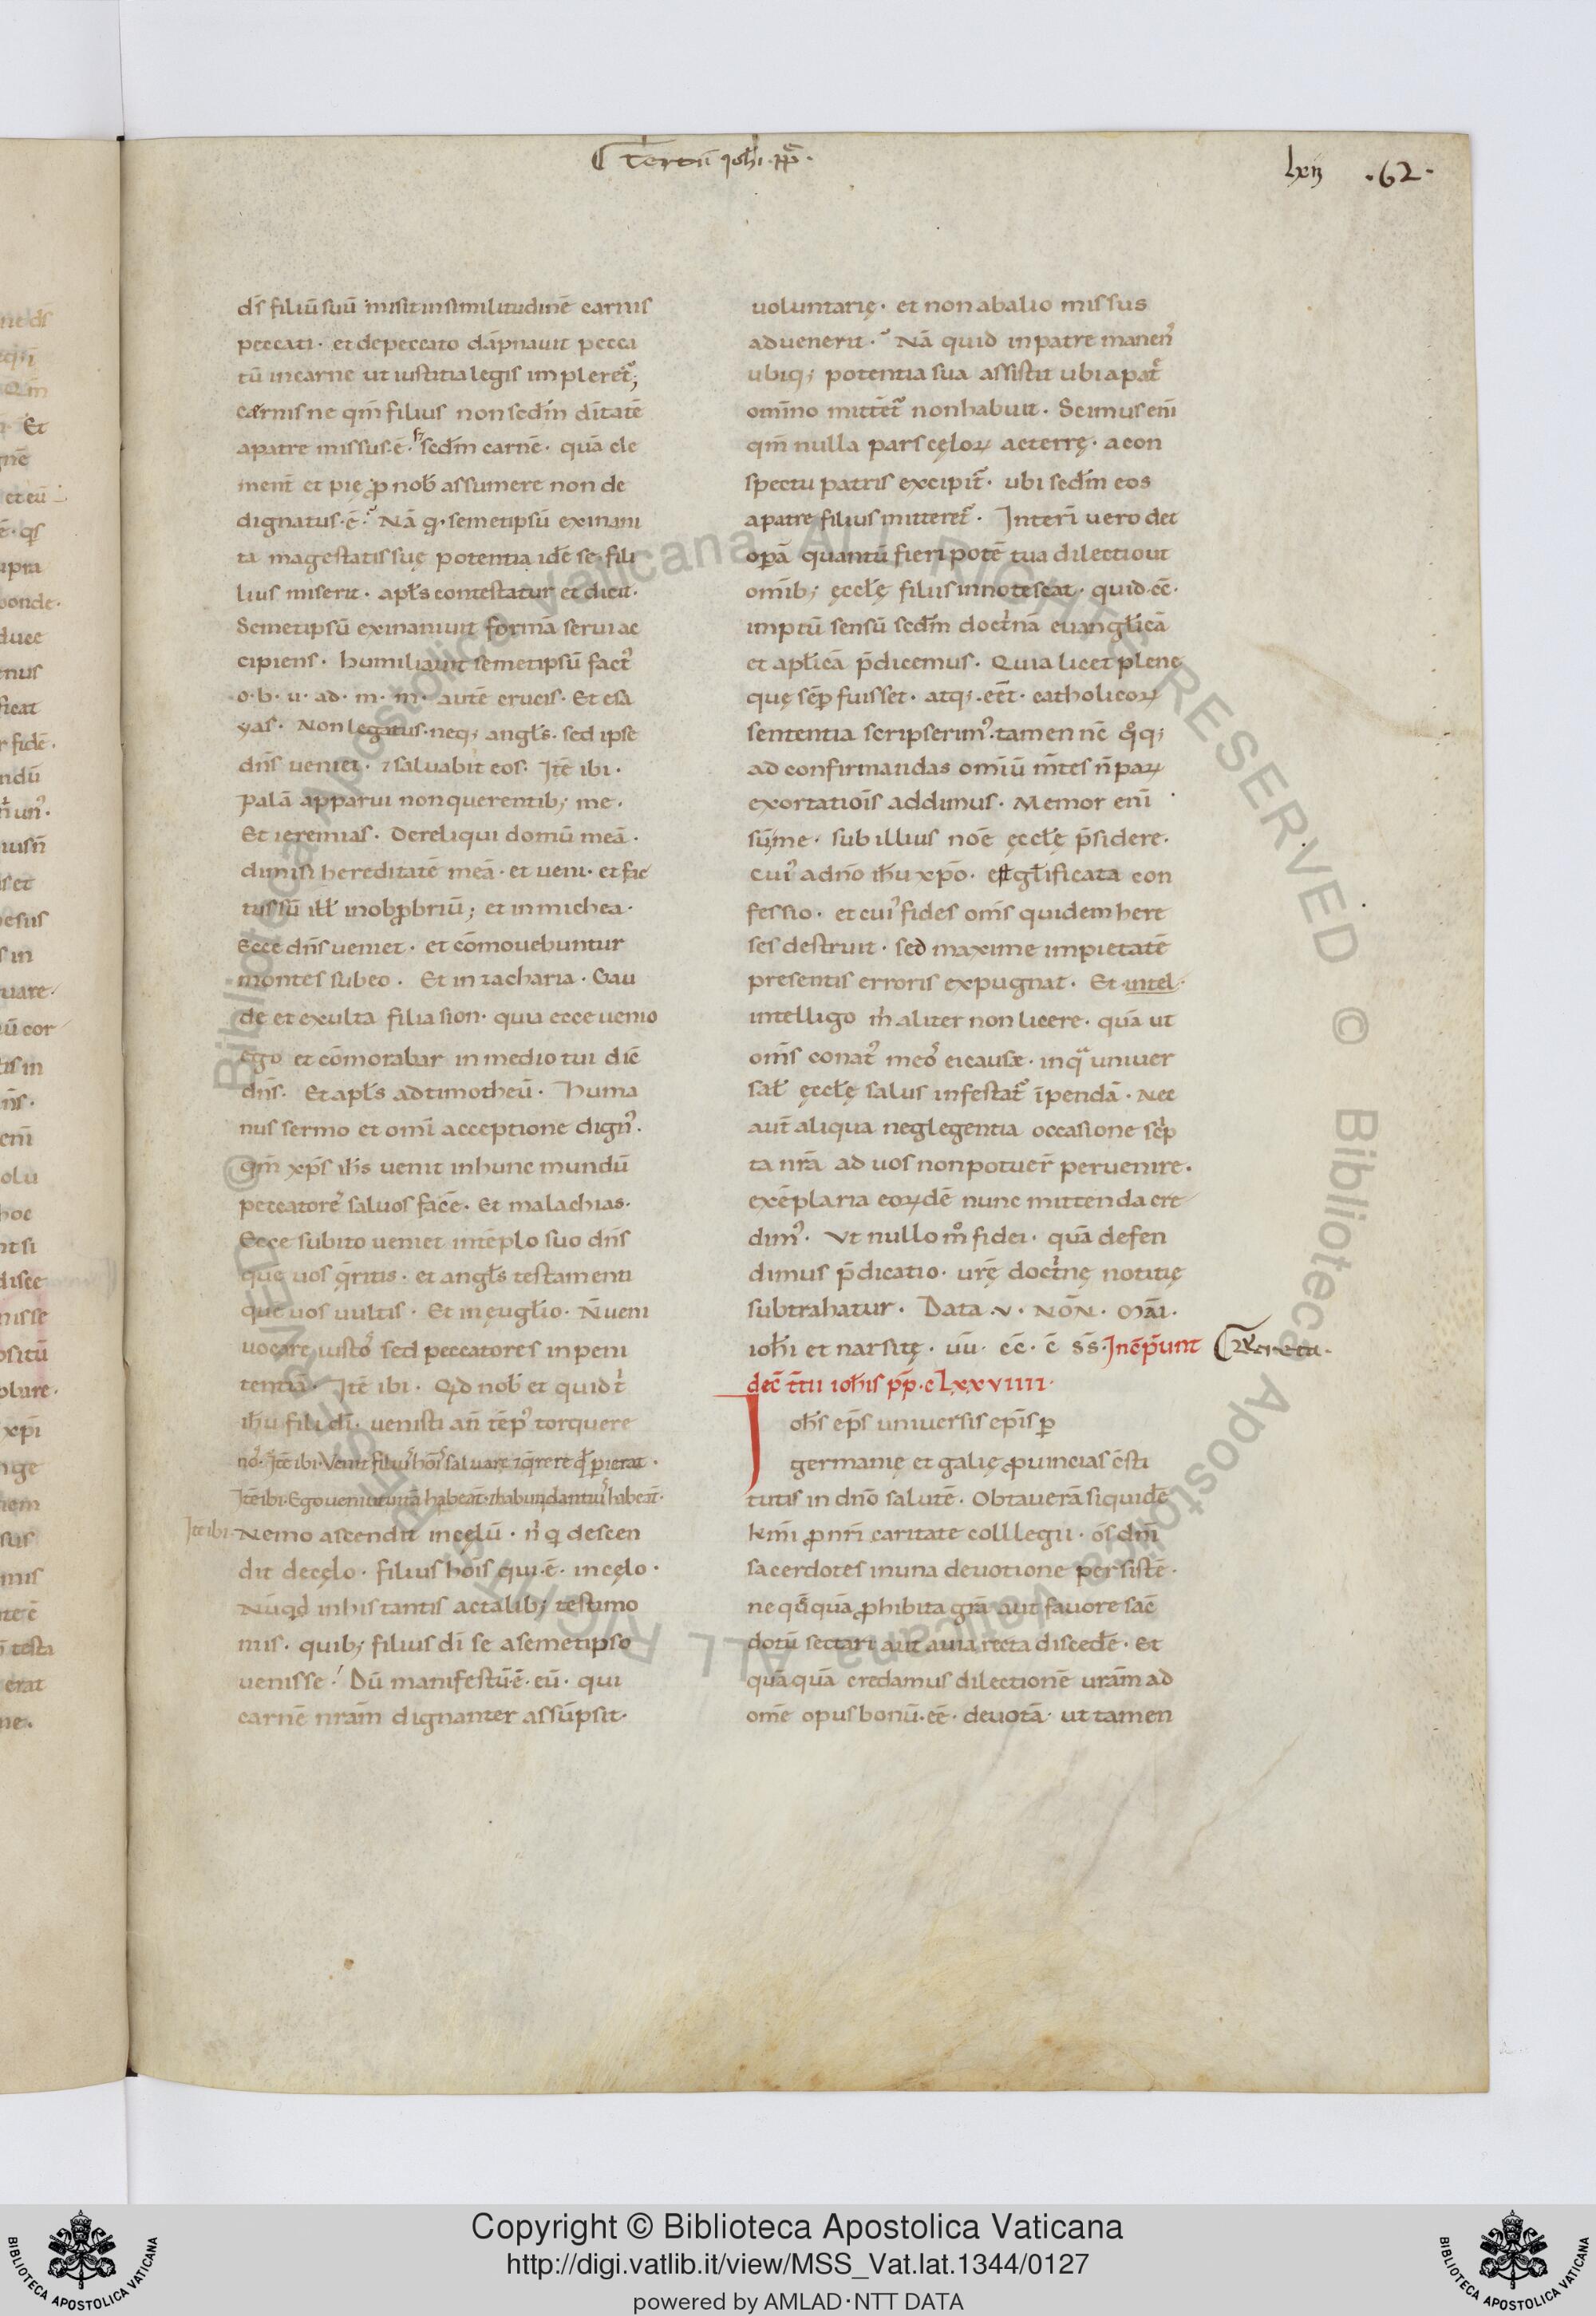 Tertii ioħi. pp̄.
lxij .62.
ds̄ filiū suū misit in similitudinē carnis
peccati. et de peccato dāpnauit pecca
tū in carne ut iustitia legis impleret᷑;
carnis ne qm̄ filius non scđm ditatē
a patre missus.ē. s; scđm carnē. quā cle
ment̄ et pię ꝓ nob̄ assumere non de
dignatus.ē. Nā q. semetipsū exinani
ta magestatis suę potentia idē se fili
lius miserit. apl̄s contestatur et dicit.
Semetipsū exinaniuit formā serui ac
cipiens. humiliauit semetipsū fact᷒
o. b. u. ad. m. m. autē crucis. Et esa
yas. Non legatus. neq; angl̄s. sed ipse
dn̄s ueniet. ⁊ saluabit eos. Itē ibi.
Palā apparui non querentib; me.
Et ieremias. Dereliqui domū meā.
dimisi hereditatē meā. et ueni. et fac
tus sū ill̄ in obꝓbriū; et in michea.
Ecce dn̄s ueniet. et cōmouebuntur
montes sub eo. Et in zacharia. Gau
de et exulta filia sion. quia ecce uenio
ego et cōmorabar in medio tui dic̄
dn̄s. Et apl̄s ad timotheū. Huma
nus sermo et omī acceptione dign᷒.
qm̄ xp̄s ih̄s uenit in hunc mundū
peccatore᷒ saluos fac̄e. Et malachias.
Ecce subito ueniet in tēplo suo dn̄s
quē uos q̄ritis. et angl̄s testamenti
quē uos uultis. Et in ęuglio. N̄ ueni
uocare iusto᷒ sed peccatores in peni
tentiā. Itē ibi. Qd nob̄ et quid t̄
ih̄u fili dī. uenisti an̄ tēp᷒ torquere
no᷒. Itē ibi. Venit filiu᷒ hoi᷒ saluare ⁊ q̄rere qđ perierat.
Itē ibi. Ego ueni ut uitā habeāt. ⁊ habundantiu᷒ habeāt.
Itē ibi. Nemo ascendit in cęlū. n̄ q descen
dit de cęlo. filius hoīs qui.ē. in cęlo.
Nūqđ in his tantis ac talib; testimo
niis. quib; filius dī se a semetipso
uenisse. Dū manifestū.ē. eū. qui
carnē nrām dignanter assūpsit.
uoluntarię. et non ab alio missus
aduenerit. Nā quid in patre manen᷒
ubiq; potentia sua assistit ubi a pat̄
omīno mittēt᷑ non habuit. Scimus enī
qm̄ nulla pars cęloꝝ ac terrę. a con
spectu patris excipit᷑. ubi scđm eos
a patre filius mitteret᷑. Interī uero det
opā quantū fieri potē tua dilectio ut
omīb; ęccl̄ę filiis innotescat. quid.ēē.
imptū sensū scđm doct̄nā euangl̄icā
et apl̄icā p̄dicemus. Quia licet plene
quę sēp fuisset. atq;.ēēt. catholicoꝝ
sententia scripserim᷒. tamen nc̄ qͦq;
ad confirmandas omīū m̄tes n̄ paꝝ
exortatiōis addimus. Memor enī
sū me. sub illius noē ęccl̄ę p̄sidere.
cui᷒ a dn̄o ih̄u xp̄o. est gl̄ificata con
fessio. et cui᷒ fides om̄s quidem here
ses destruit. sed maxime impietatē
presentis erroris expugnat. Et intel.
intelligo m̄ aliter non licere. quā ut
om̄s conat᷒ meo᷒ ei causæ. in qͣ uniuer
sal̄ ęccl̄ę salus infestat᷑ īpendā. Nec
aut̄ aliqua neglegentia occasione sc̄p
ta nrā ad uos non potuer̄ peruenire.
exēplaria eoꝝdē nunc mittenda cre
dim᷒. Ut nullo mͦ fidei. quā defen
dimus p̄dicatio. urę̄ doct̄nę notitię
subtrahatur. Data .v. NŌN. MAI.
ioħi et narsitę. uū. cc̄. c̄ ss̄. Inc̄ip̄unt
dec̄ t̄tii ioħis pp̄. cLxxviiii.
Iohs̄ ep̄s uniuersis ep̄is p
germanię et galię ꝓuincias c̄sti
tutis in dn̄o salutē. Obtauerā siquidē
kmī ꝓ nr̄i caritate colllegii. oīs dm̄i
sacerdotes in una deuotione persistē.
ne qͦquā ꝓhibita grā aut fauore sac̄
dotū sectari aut auia recta disced̄e. Et
quāquā credamus dilectionē urām ad
om̄e opus bonū.ēē. deuotā. ut tamen
Copyright © Biblioteca Apostolica Vaticana
http://digi.vatlib.it/view/MSS_Vat.lat.1344/0127
powered by AMLAD·NTT DATA